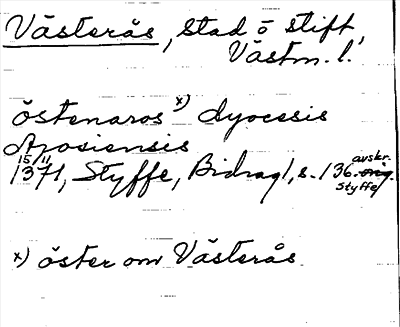 Västerås, stad o stift,
Västm. l.
östenaros x) dyocesis
Arosiensis
15/11 1371, Styffe, Bidrag 1, s. 136. avskr. Styffe
x) öster om Västerås